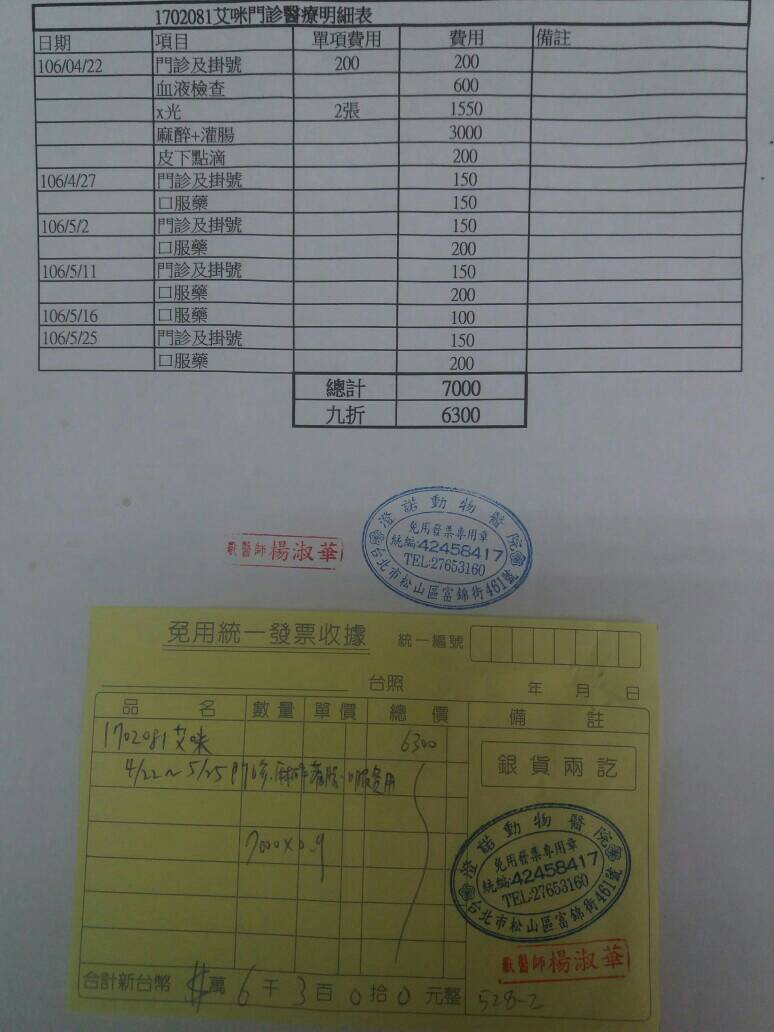 1702081艾咪門診醫療明細表
日期 項目 單項費用 費用 備註
106/04/22 門診及掛號 200 200
血液檢查 600
x光 2張 1550
麻醉+灌腸 3000
皮下點滴 200
106/4/27 門診及掛號 150
口服藥 150
106/5/2 門診及掛號 150
口服藥 200
106/5/11 門診及掛號 150
口服藥 200
106/5/16 口服藥 100
106/5/25 門診及掛號 150
口服藥 200
總計 7000
九折 6300
獸醫師楊淑華
澄諾動物醫院
免用發票專用章
統編:42458417
TEL:27653160
台北市松山區富錦街461號
免用統一發票收據 統一編號
台照 年 月 日
品名 數量 單價 總價 備註
1702081艾咪 6300
4/22~5/25門診.麻醉灌腸.口服費用
銀貨兩訖
7000x0.9
澄諾動物醫院
免用發票專用章
統編:42458417
TEL:27653160
台北市松山區富錦街461號
獸醫師楊淑華
合計新台幣 萬6千3百0拾0元整
528-2